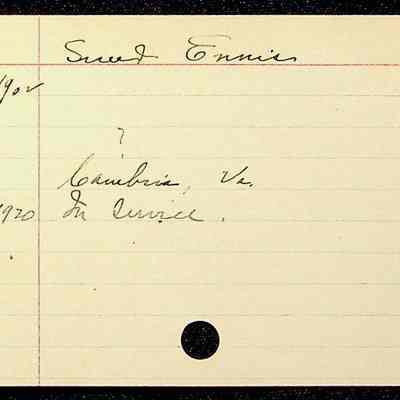 Sneed Ennis
1902
?
Cambria, Va.
1920 In Service.